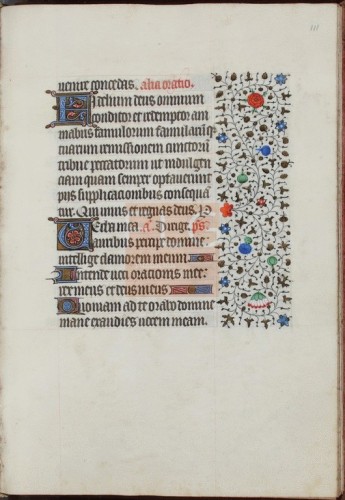 uenire concedas. alia oratio.
Fidelium deus omnium
conditor et redemptor ani
mabus famulorum familarūq;
tuarum remissionem cunctorū
tribue peccatorum ut indulgen
ciam quam semper optauerunt
pijs supplicacionibus consequā
tur. Qui uiuis et regnas deus. P
Verba mea. a. Dirige. ps.
auribus percipe domine:
intellige clamorem meum.
Intende uoci oracionis mee:
rex meus et deus meus
Quoniam ad te orabo domine
mane exaudies uocem meam.